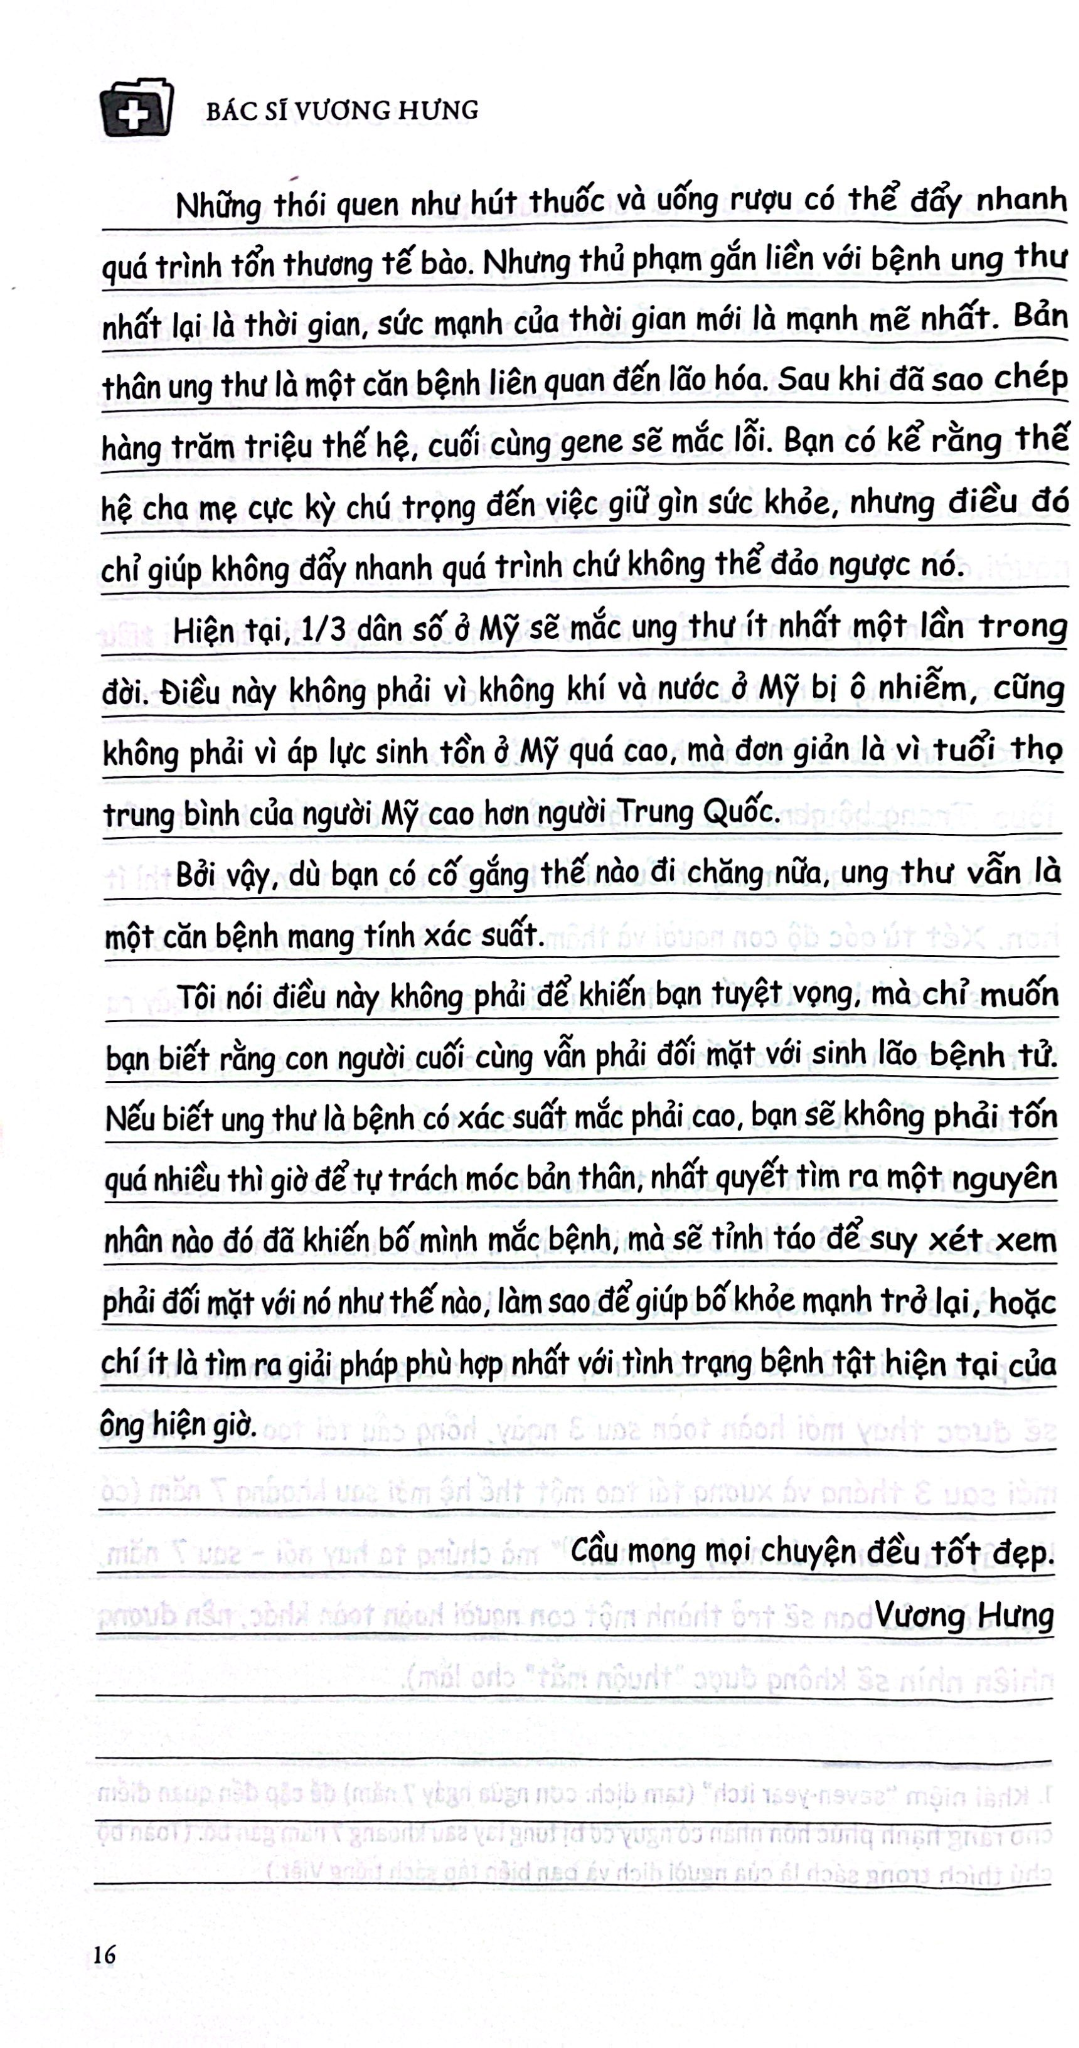 BÁC SĨ VƯƠNG HƯNG
Những thói quen như hút thuốc và uống rượu có thể đẩy nhanh
quá trình tổn thương tế bào. Nhưng thủ phạm gắn liền với bệnh ung thư
nhất lại là thời gian, sức mạnh của thời gian mới là mạnh mẽ nhất. Bản
thân ung thư là một căn bệnh liên quan đến lão hóa. Sau khi đã sao chép
hàng trăm triệu thế hệ, cuối cùng gene sẽ mắc lỗi. Bạn có kể rằng thế
hệ cha mẹ cực kỳ chú trọng đến việc giữ gìn sức khỏe, nhưng điều đó
chỉ giúp không đẩy nhanh quá trình chứ không thể đảo ngược nó.
Hiện tại, 1/3 dân số ở Mỹ sẽ mắc ung thư ít nhất một lần trong
đời. Điều này không phải vì không khí và nước ở Mỹ bị ô nhiễm, cũng
không phải vì áp lực sinh tồn ở Mỹ quá cao, mà đơn giản là vì tuổi thọ
trung bình của người Mỹ cao hơn người Trung Quốc.
Bởi vậy, dù bạn có cố gắng thế nào đi chăng nữa, ung thư vẫn là
một căn bệnh mang tính xác suất.
Tôi nói điều này không phải để khiến bạn tuyệt vọng, mà chỉ muốn
bạn biết rằng con người cuối cùng vẫn phải đối mặt với sinh lão bệnh tử.
Nếu biết ung thư là bệnh có xác suất mắc phải cao, bạn sẽ không phải tốn
quá nhiều thì giờ để tự trách móc bản thân, nhất quyết tìm ra một nguyên
nhân nào đó đã khiến bố mình mắc bệnh, mà sẽ tỉnh táo để suy xét xem
phải đối mặt với nó như thế nào, làm sao để giúp bố khỏe mạnh trở lại, hoặc
chí ít là tìm ra giải pháp phù hợp nhất với tình trạng bệnh tật hiện tại của
ông hiện giờ.
Cầu mong mọi chuyện đều tốt đẹp.
Vương Hưng
16